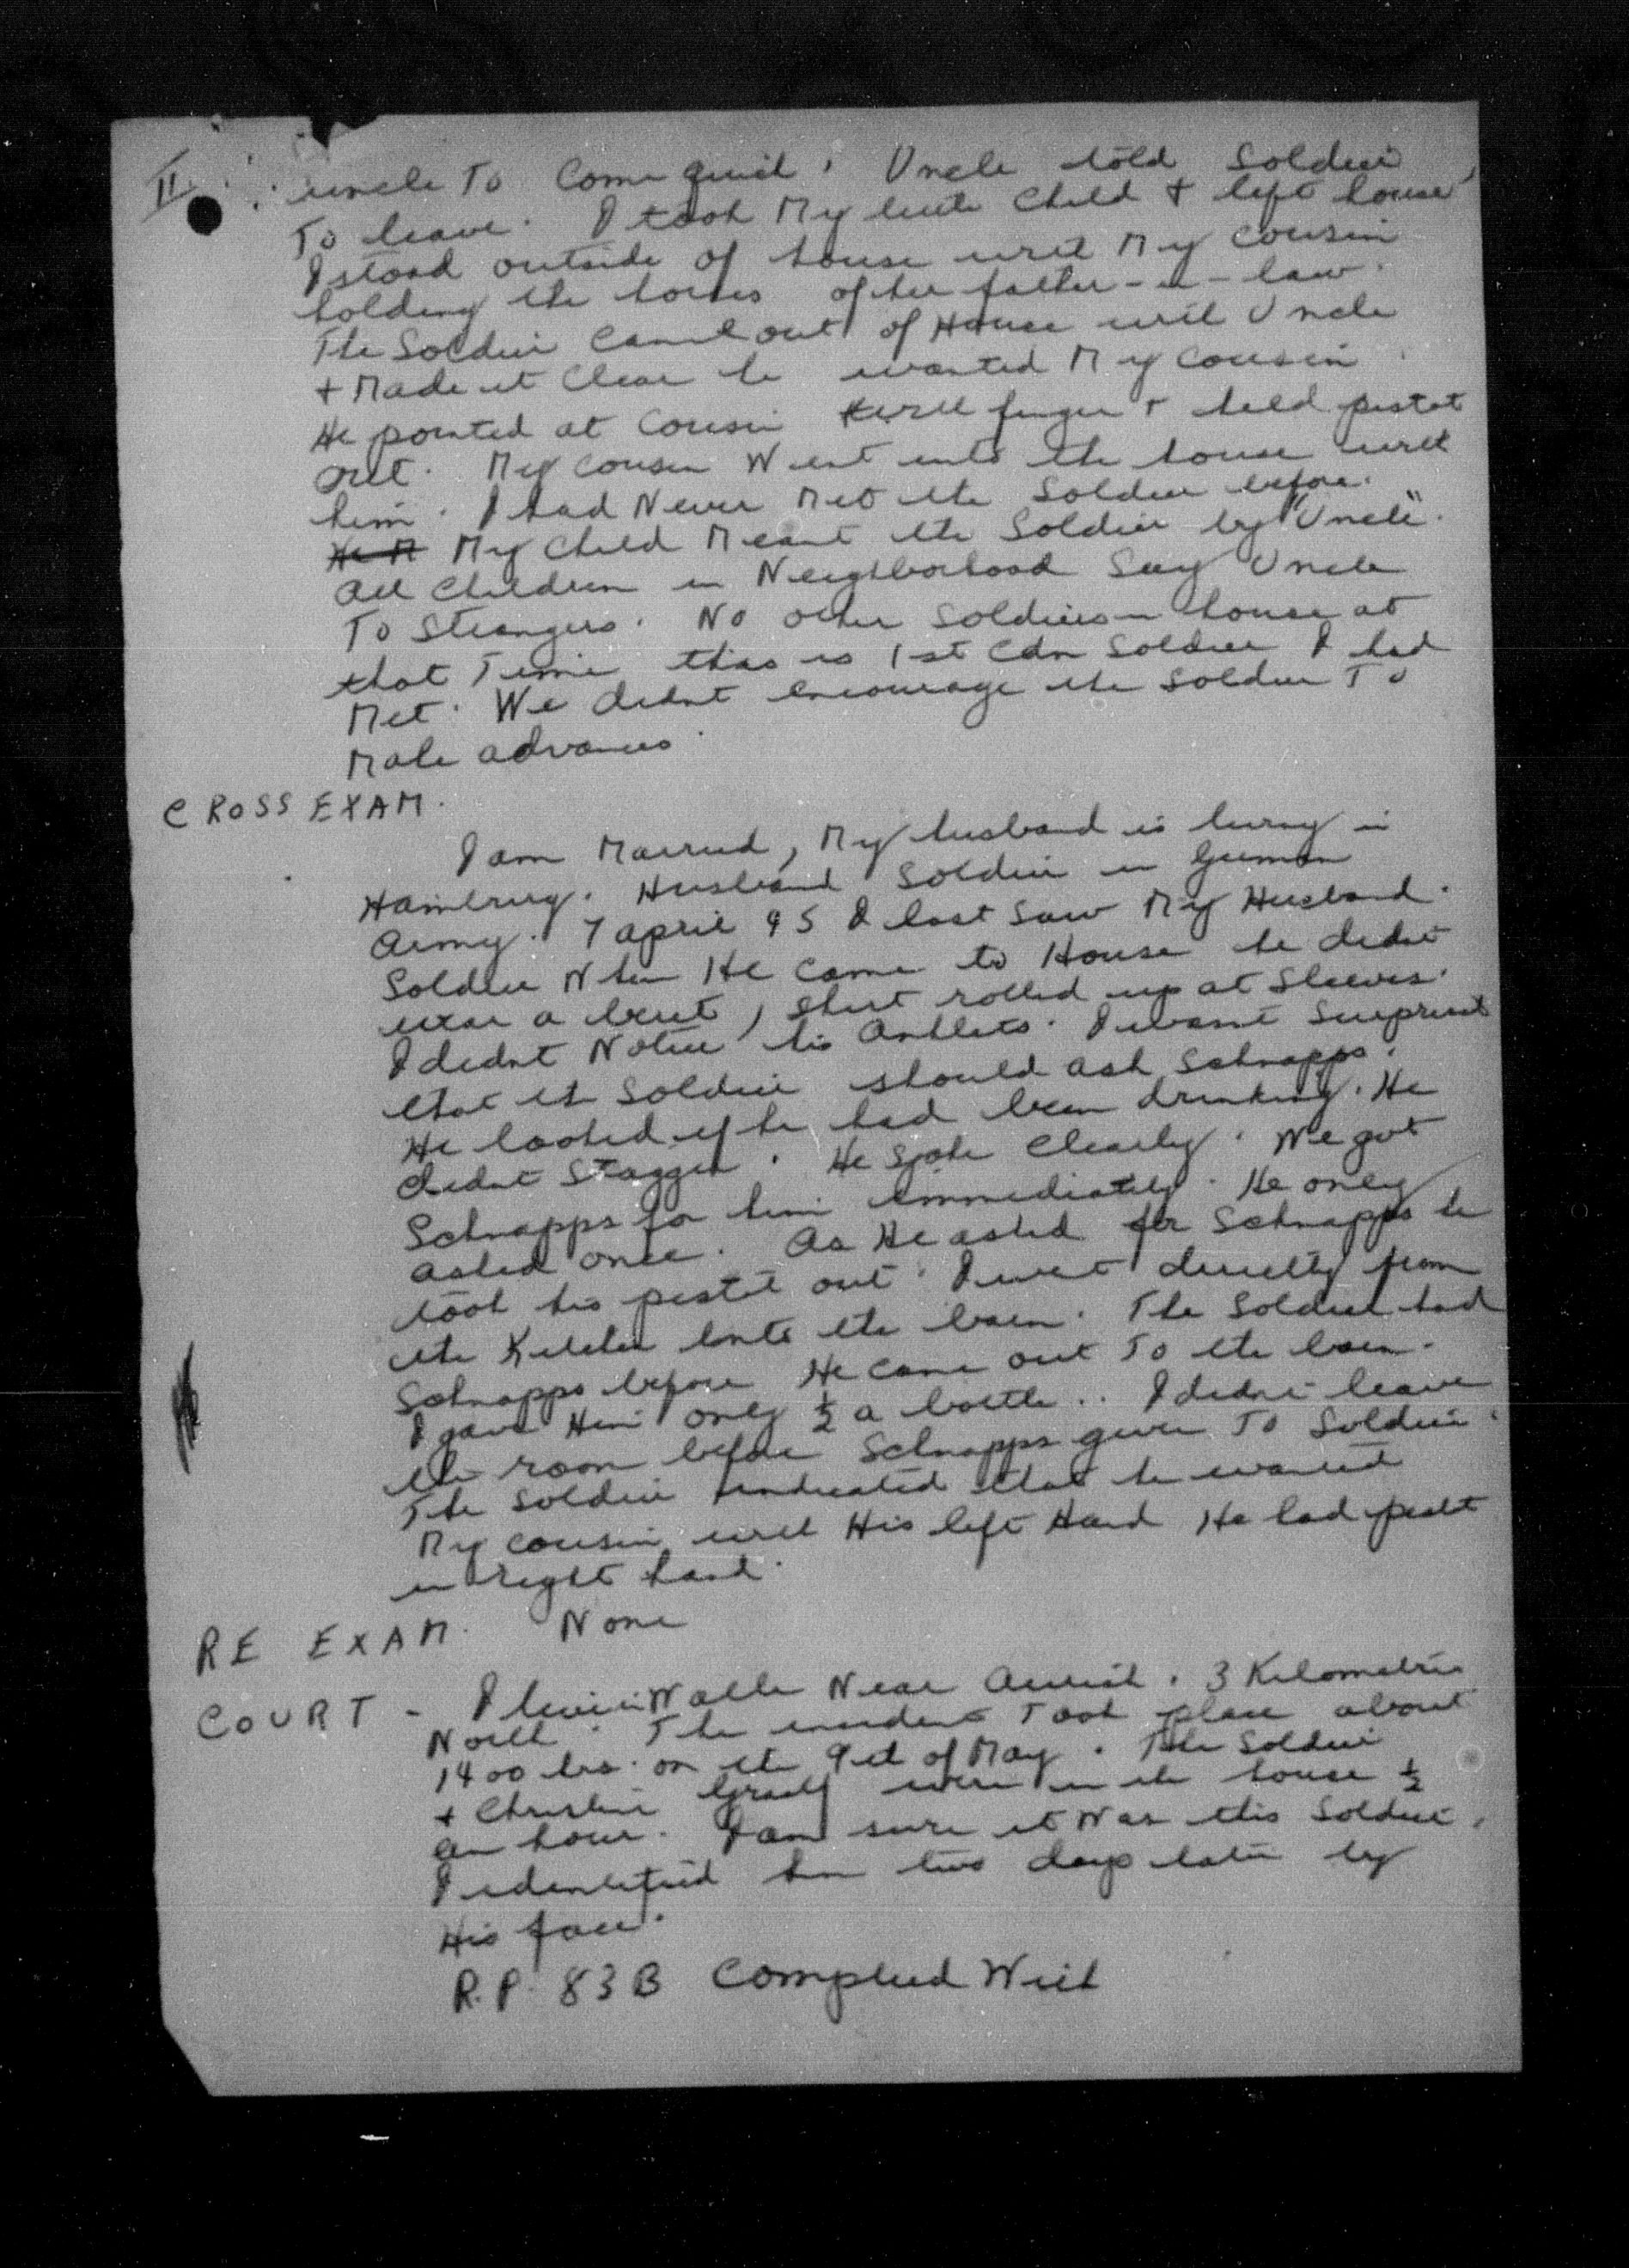 II
uncle To Come quick. Uncle told Soldier
To leave. I took My little Child + left house
I stood outside of house with My cousin
holding the horses of her father-in-law.
The Soldier came out of House with Uncle
+ Made it Clear he wanted My cousin.
He pointed at Cousin with finger + held pistol
out. My cousin Went into the house with
him. I had Never Met the Soldier before.
He M My Child Meant the Soldier by "Uncle".
all Children in Neighborhood Say Uncle
To Strangers. No other Soldiers in house at
that Time this is 1st Cdn Soldier I had
Met. We didnt encourage the Soldier To
Make advances.
CROSS EXAM.
I am Married, My husband is living in
Hamburg. Husband Soldier in German
Army. 7 april 45 I last Saw My Husband.
Soldier When He came to House he didnt
wear a beret, Shirt rolled up at Sleeves.
I didnt Notice his Anklets. I wasnt Surprised
that the Soldier should ask Schnapps.
He looked if he had been drinking. He
didnt Stagger. He Spoke Clearly. We got
Schnapps for him immediately. He only
asked once. As He asked for Schnapps he
took his pistol out. I went directly from
the Kitchen into the barn. The Soldier had
Schnapps before He came out To the barn.
I gave Him only ½ a bottle.. I didnt leave
the room before Schnapps given To Soldier.
The Soldier indicated that he wanted
My cousin with His left Hand He had pistol
in right hand.
RE EXAM. None
COURT - I live in Walle Near Aurich. 3 Kilometres
North. The incident Took place about
1400 hrs. on the 9th of May. The Soldier
+ Christine were in the house ½
an hour. I am sure it Was this Soldier.
I identified him two days later by
His face.
R.P. 83B Complied With